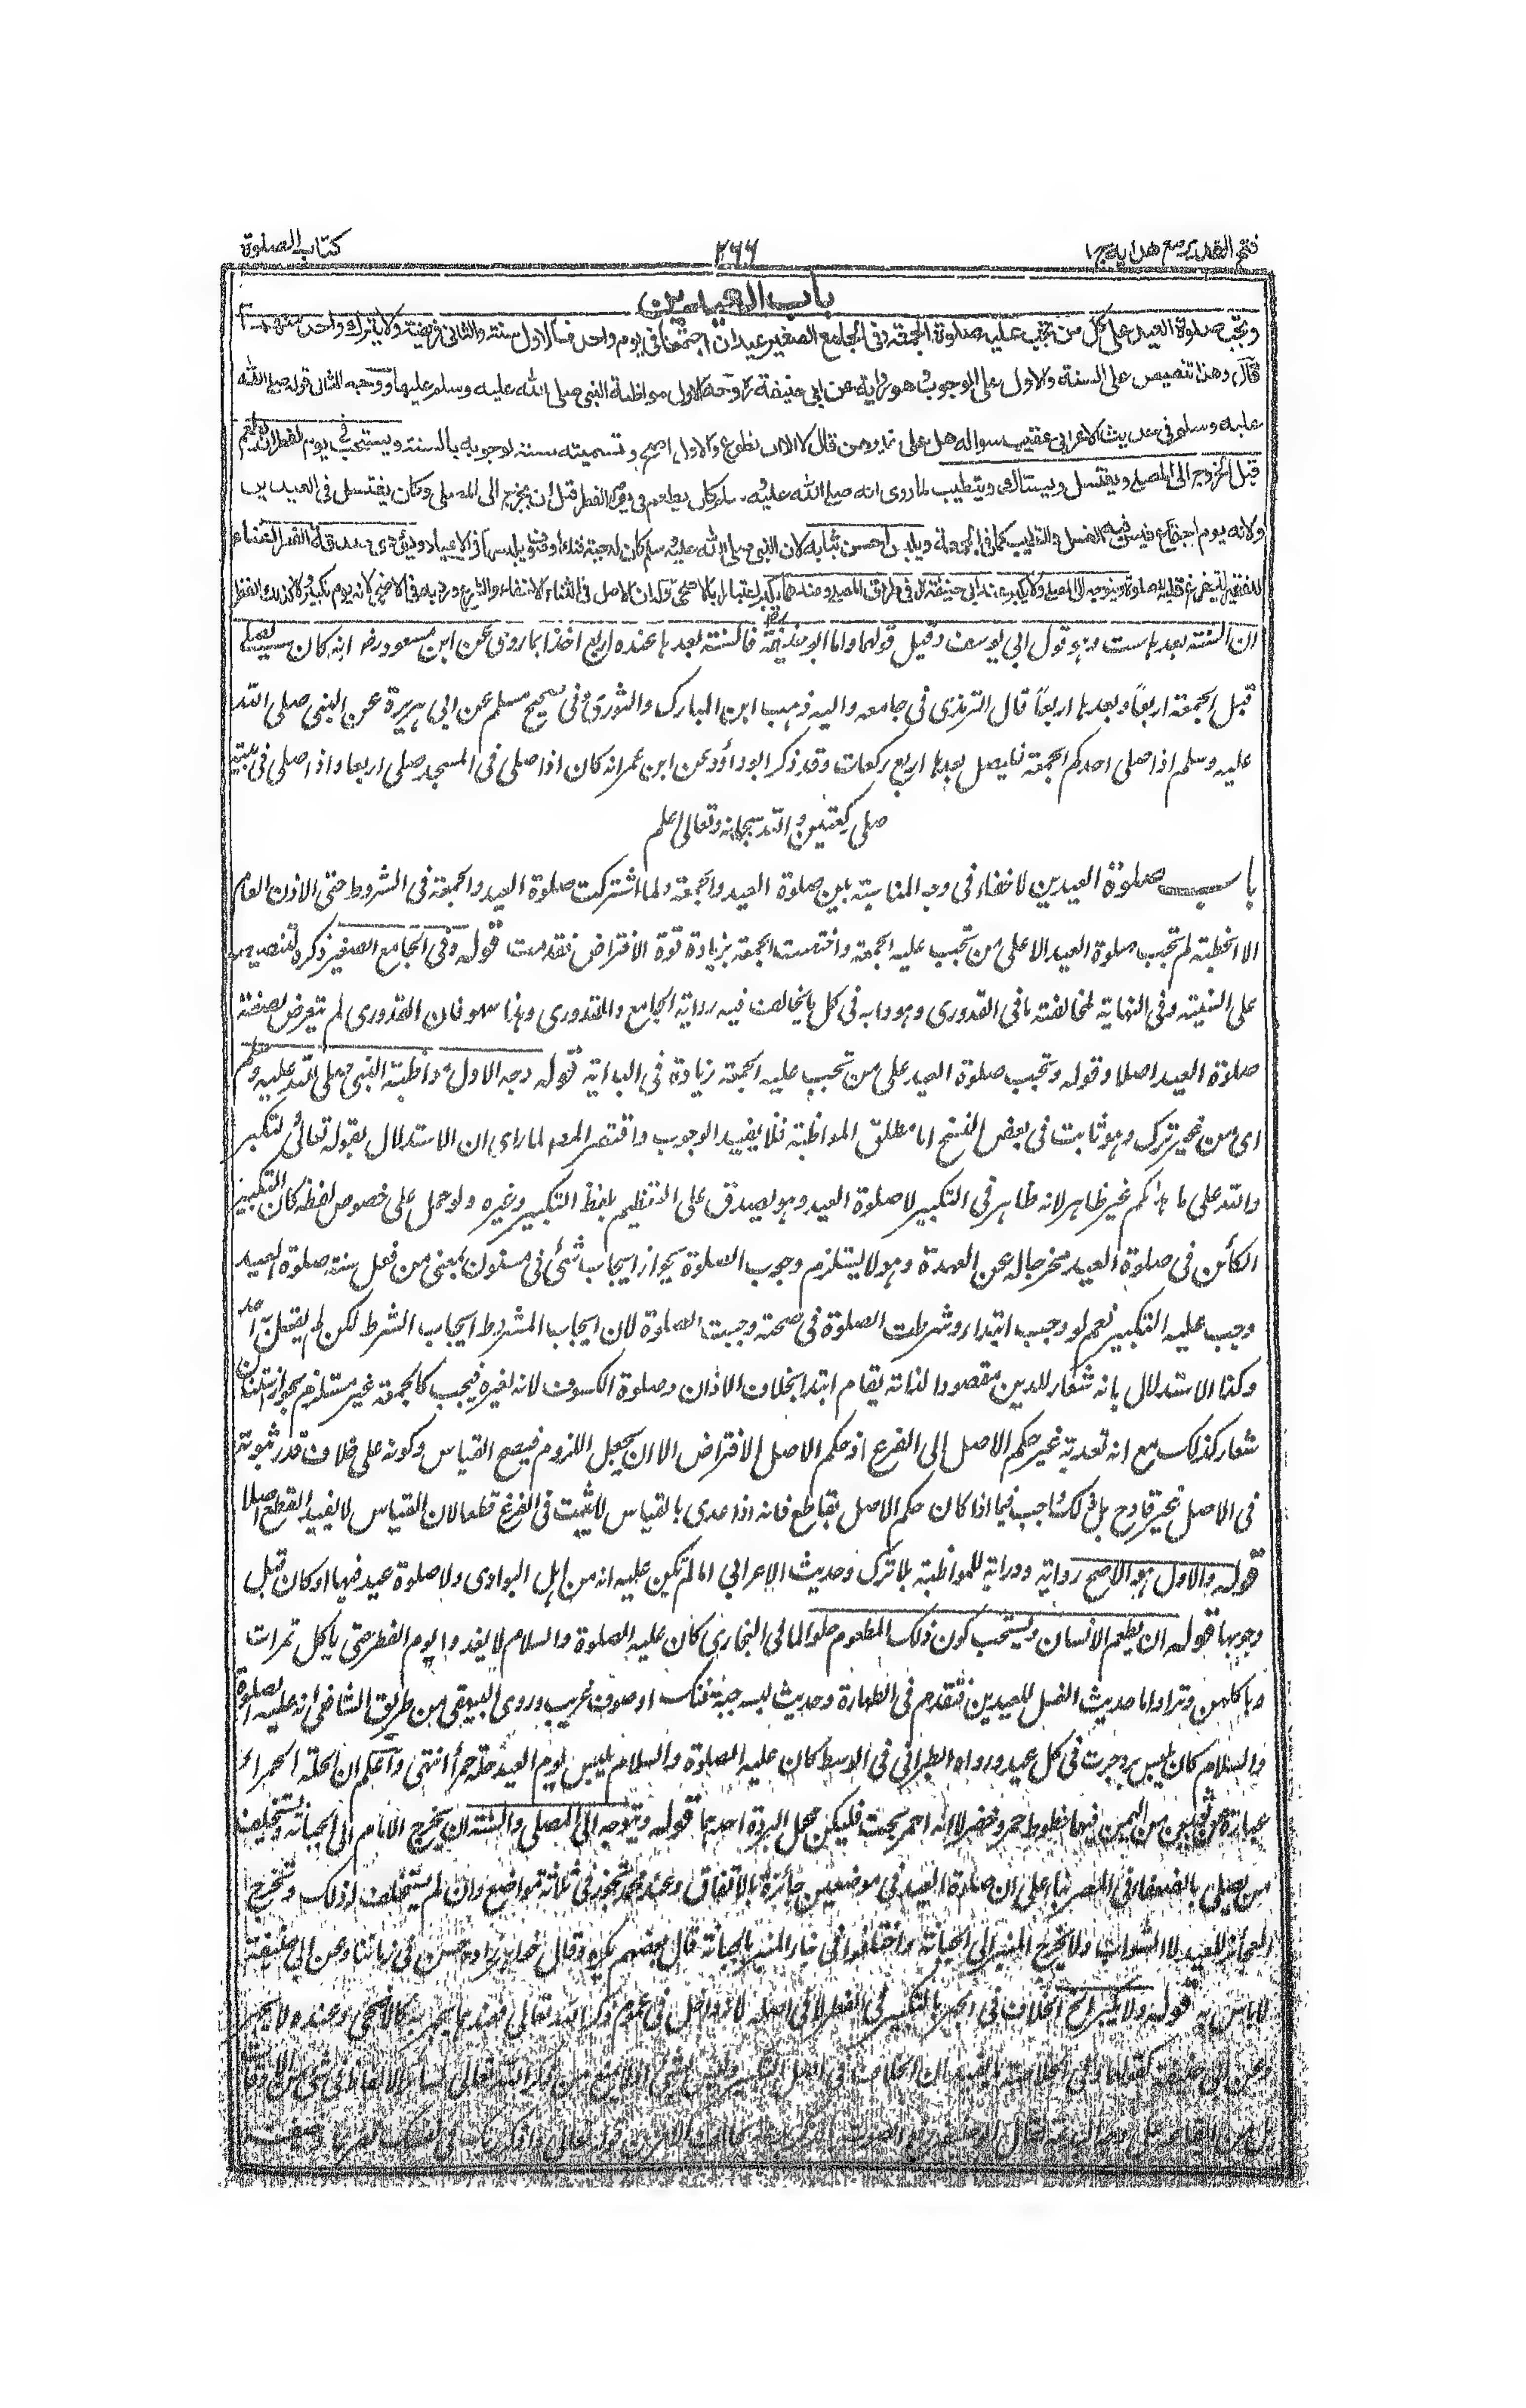 فتح القدير مع هداية ج ١
٢٦٦
كتاب الصلوة
باب العيدين
وتجب صلوة العيد على كل من تجب عليه صلوة الجمعة وفى الجامع الصغير عيدان اجتمعا فى يوم واحد فالاول سنة والثانى فريضة ولا يترك واحد منهما
قال وهذا تنصيص على السنة والاول على الوجوب وهو رواية عن ابى حنيفة وجه الاول مواظبة النبى صلى الله عليه وسلم عليها ووجه الثانى قوله صلى الله
عليه وسلم فى حديث الاعرابى عقيب سواله هل على غيرهن قال لا الا ان تطوع والاول اصح وتسميته سنة لوجوبه بالسنة ويستحب فى يوم الفطر ان يطعم
قبل الخروج الى المصلى ويغتسل ويستاك ويتطيب لما روى انه صلى الله عليه وسلم كان يطعم فى يوم الفطر قبل ان يخرج الى المصلى وكان يغتسل فى العيدين
ولانه يوم اجتماع فيسن فيه الغسل والتطيب كما فى الجمعة ويلبس احسن ثيابه لان النبى صلى الله عليه وسلم كان له جبة فنك او صوف يلبسها فى الاعياد ويؤدى صدقة الفطر اغناء
للفقير ليتفرغ قلبه للصلوة ويتوجه الى المصلى ولا يكبر عند ابى حنيفة فى طريق المصلى وعندهما يكبر اعتبارا بالاضحى وله ان الاصل فى الثناء الاخفاء والشرع ورد به فى الاضحى لانه يوم تكبير ولا كذلك الفطر
ان السنة بعدها ست وهو قول ابى يوسف وقيل قولهما واما ابو حنيفة فالسنة بعدها عنده اربع اخذا بما روى عن ابن مسعود رض انه كان يصلى
قبل الجمعة اربعا وبعدها اربعا قال الترمذى فى جامعه واليه ذهب ابن المبارك والثورى وفى صحيح مسلم عن ابى هريرة عن النبى صلى الله
عليه وسلم اذا صلى احدكم الجمعة فليصل بعدها اربع ركعات وقد ذكر ابو داؤد عن ابن عمر انه كان اذا صلى فى المسجد صلى اربعا واذا صلى فى بيته
صلى ركعتين والله سبحانه وتعالى اعلم
باب صلوة العيدين لا خفاء فى وجه المناسبة بين صلوة العيد والجمعة ولما اشتركت صلوة العيد والجمعة فى الشروط حتى الاذن العام
الا الخطبة لم تجب صلوة العيد الا على من تجب عليه الجمعة واختصت الجمعة بزيادة قوة الافتراض فقدمت قوله وفى الجامع الصغير ذكره لتنصيصه
على السنية وفى النهاية لمخالفته ما فى القدورى وهو دابه فى كل ما يخالف فيه رواية الجامع والقدورى وهذا سهو فان القدورى لم يتعرض لصفة
صلوة العيد اصلا وقوله وتجب صلوة العيد على من تجب عليه الجمعة زيادة فى البداية قوله وجه الاول مواظبة النبى صلى الله عليه وسلم
اى من غير ترك وهو ثابت فى بعض النسخ اما مطلق المواظبة فلا يفيد الوجوب واقتصر المصه لما راى ان الاستدلال بقوله تعالى لتكبروا
والله على ما هداكم غير ظاهر لانه ظاهر فى التكبير لا صلوة العيد وهو يصدق على التعظيم بلفظ التكبير وغيره ولو حمل على خصوص لفظه كان التكبير
الكائن فى صلوة العيد مخرجا له عن العهدة وهو لا يستلزم وجوب الصلوة بجواز ايجاب شئ فى مسنون بمعنى من فعل سنة صلوة العيد
وجب عليه التكبير نعم لو وجب ابتداء وشرطت الصلوة فى صحته وجبت الصلوة لان ايجاب المشروط ايجاب الشرط لكن لم يقل به احد
وكذا الاستدلال بانه شعار للدين مقصودا لذاته يقام ابتداء بخلاف الاذان وصلوة الكسوف لانه لغيره فيجب كالجمعة غير مستلزم بجواز استنان
شعار كذلك مع انه تعدية غير حكم الاصل الى الفرع اذ حكم الاصل الافتراض الا ان يجعل اللزوم فيصح القياس وكونه على خلاف قدر ثبوته
فى الاصل غير قادح بل ذلك واجب فيما اذا كان حكم الاصل بقاطع فانه اذا عدى بالقياس لا يثبت فى الفرع قطعا لان القياس لا يفيد القطع اصلا
قوله والاول هو الاصح رواية ودراية للمواظبة بلا ترك وحديث الاعرابى اما لم تكن عليه انه من اهل البوادى ولا صلوة عيد فيها او كان قبل
وجوبها قوله ان يطعم الانسان ويستحب كون ذلك المطعوم حلوا لما فى البخارى كان عليه الصلوة والسلام لا يغدو يوم الفطر حتى ياكل تمرات
وياكلهن وترا واما حديث الغسل للعيدين فتقدم فى الطهارة وحديث لبسه جبة فنك او صوف غريب وروى البيهقى من طريق الشافعى انه عليه الصلوة
والسلام كان يلبس برد حبرة فى كل عيد ورواه الطبرانى فى الاوسط كان عليه الصلوة والسلام يلبس يوم العيد حلة حمراء انتهى واعلم ان الحلة الحمراء
عبارة عن ثوبين من اليمن فيها خطوط حمر وخضر لا انه احمر بحت فليكن محمل البردة احدهما قوله ويتوجه الى المصلى والسنة ان يخرج الامام الى الجبانة ويستخلف
من يصلى بالضعفاء فى المصر بناء على ان صلوة العيد فى موضعين جائزة بالاتفاق وعند محمد تجوز فى ثلاثة مواضع وان لم يستخلف له ذلك وتخرج
العجائز للعيد لا الشواب ولا يخرج المنبر الى الجبانة واختلفوا فى بناء المنبر بالجبانة قال بعضهم يكره وقال خواهر زاده حسن فى زماننا وعن ابى حنيفة
لا باس به قوله ولا يكبر الخ الخلاف فى الجهر بالتكبير فى الفطر لا فى اصله لانه داخل فى عموم ذكر الله تعالى فعندهما يجهر به كالاضحى وعنده لا يجهر
وعن ابى حنيفة كقولهما وفى الخلاصة ما يفيد ان الخلاف فى اصل التكبير وليس بشئ اذ لا يمنع من ذكر الله تعالى بسائر الالفاظ فى شئ من الاوقات